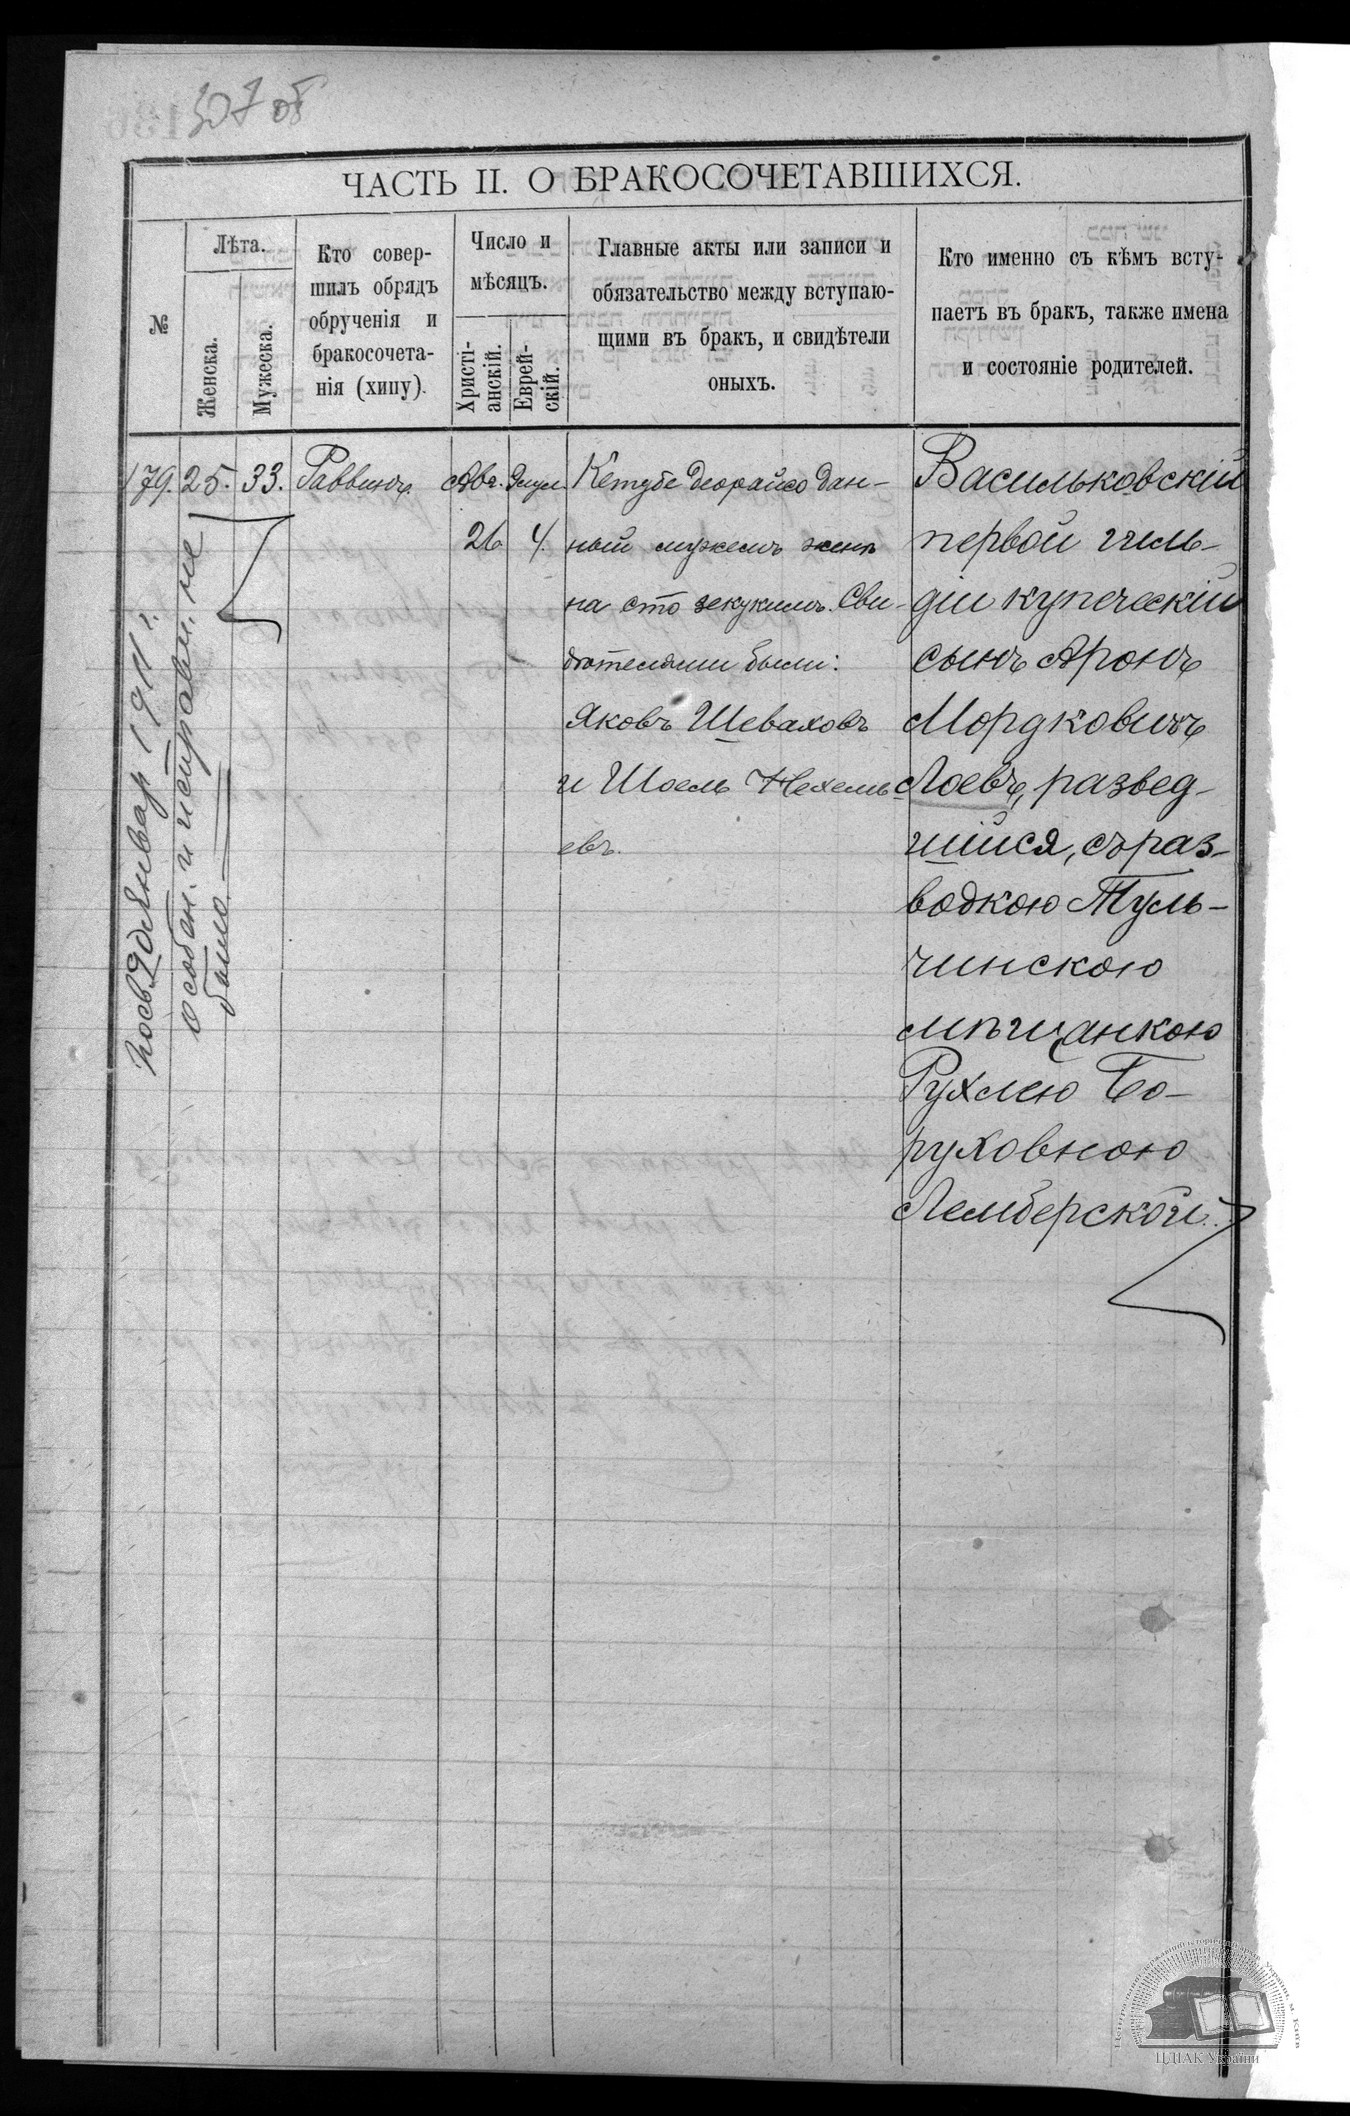 307 об
ЧАСТЬ II. О БРАКОСОЧЕТАВШИХСЯ.
№
Лѣта.
Женска.
Мужеска.
Кто совер-
шилъ обрядъ
обрученія и
бракосочета-
нія (хипу).
Число и
мѣсяцъ.
Христі-
анскій.
Еврей-
скій.
Главные акты или записи и
обязательство между вступаю-
щими въ бракъ, и свидѣтели
оныхъ.
Кто именно съ кѣмъ всту-
паетъ въ бракъ, также имена
и состояніе родителей.
179. 25. 33. Раввинъ. Авг. Элул.
26 4.
Кетубе деорайсо дан-
ный мужемъ женѣ
на сто зекукимъ. Сви-
дѣтелями были:
Яковъ Шеваховъ
и Шоель Нехемь
евъ.
Васильковскій
первой гиль-
діи купеческій
сынъ Аронъ
Мордковичъ
Лоевъ, развед-
шійся, съ раз-
водкою Туль-
чинскою
мѣщанкою
Рухлею Бо-
руховною
Лемберской.
Январ 1911 г.
особен. и исправл. не
было
ЦДІАК України